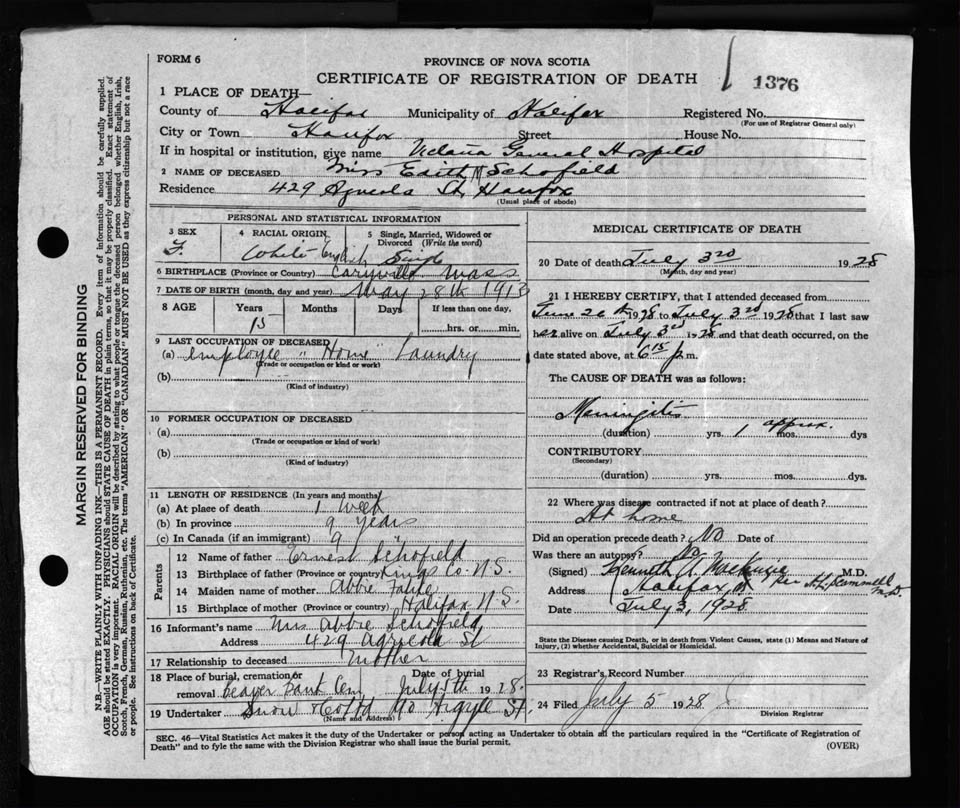 FORM 6
PROVINCE OF NOVA SCOTIA
CERTIFICATE OF REGISTRATION OF DEATH
1376
1 PLACE OF DEATH—
County of Halifax Municipality of Halifax Registered No.
(For use of Registrar General only)
City or Town Halifax Street House No.
If in hospital or institution, give name Victoria General Hospital
2 NAME OF DECEASED Miss Edith M Schofield
Residence 429 Agricola St, Halifax
(Usual place of abode)
PERSONAL AND STATISTICAL INFORMATION
3 SEX F.
4 RACIAL ORIGIN White English
5 Single, Married, Widowed or Divorced (Write the word) Single
6 BIRTHPLACE (Province or Country) Mass
7 DATE OF BIRTH (month, day and year) May 28th 1913
8 AGE Years Months Days If less than one day,
15 hrs. or min.
9 LAST OCCUPATION OF DECEASED
(a) Employee "Home" Laundry
(Trade or occupation or kind or work)
(b)
(Kind of industry)
10 FORMER OCCUPATION OF DECEASED
(a)
(Trade or occupation or kind of work)
(b)
(Kind of industry)
11 LENGTH OF RESIDENCE (In years and months)
(a) At place of death 1 week
(b) In province 9 years
(c) In Canada (if an immigrant) 9 "
Parents
12 Name of father Ernest Schofield
13 Birthplace of father (Province or country) Kings Co. N.S.
14 Maiden name of mother Abbie
15 Birthplace of mother (Province or country) Halifax N.S.
16 Informant's name Mrs Abbie Schofield
Address 429 Agricola St
17 Relationship to deceased Mother
18 Place of burial, cremation or removal Date of burial
Beaver Bank Cem July 5th 1928.
19 Undertaker Snow & Co Ltd 90 Argyle St.
(Name and Address)
MEDICAL CERTIFICATE OF DEATH
20 Date of death July 3rd 1928
(Month, day and year)
21 I HEREBY CERTIFY, that I attended deceased from
June 26th 1928 to July 3rd 1928 that I last saw
her alive on July 3rd 1928 and that death occurred, on the
date stated above, at 6.15 p m.
The CAUSE OF DEATH was as follows:
Meningitis
(duration) yrs. 1 mos. approx. dys
CONTRIBUTORY
(Secondary)
(duration) yrs. mos. dys
22 Where was disease contracted if not at place of death?
At home
Did an operation precede death? No Date of
Was there an autopsy? No
(Signed) Kenneth A. MacKenzie M.D.
Address Halifax, N.S. per M.D.
Date July 3, 1928
State the Disease causing Death, or in death from Violent Causes, state (1) Means and Nature of Injury, (2) whether Accidental, Suicidal or Homicidal.
23 Registrar's Record Number
24 Filed July 5 1928
Division Registrar
SEC. 46—Vital Statistics Act makes it the duty of the Undertaker or person acting as Undertaker to obtain all the particulars required in the "Certificate of Registration of
Death" and to file the same with the Division Registrar who shall issue the burial permit.
(OVER)
MARGIN RESERVED FOR BINDING
N.B.—WRITE PLAINLY WITH UNFADING INK—THIS IS A PERMANENT RECORD. Every item of information should be carefully supplied.
AGE should be stated EXACTLY. PHYSICIANS should STATE CAUSE OF DEATH in plain terms, so that it may be properly classified. Exact statement of
OCCUPATION is very important. RACIAL ORIGIN will be described by stating to what people or tongue the deceased person belonged whether English, Irish,
Scotch, French, German, Russian, Ruthenian, etc. The terms "AMERICAN" OR "CANADIAN" MUST NOT BE USED as they express citizenship but not a race
or people. See instructions on back of Certificate.